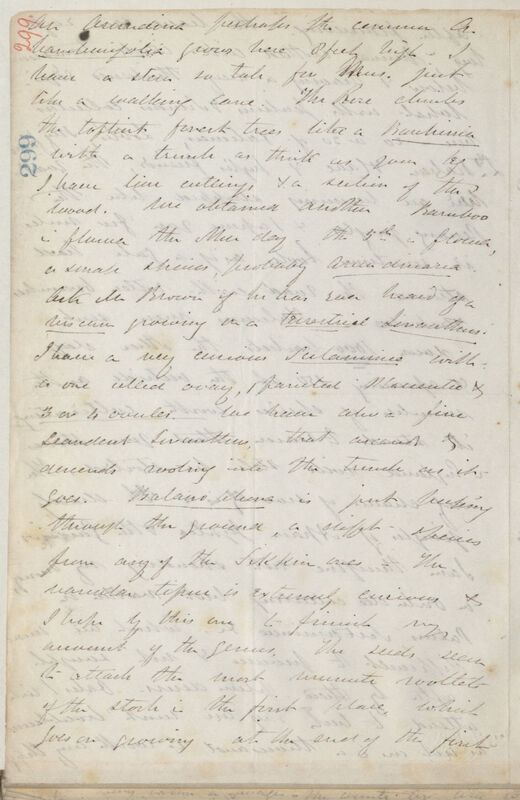 299
299
an Arundina perhaps the common A.
bambusifolia grows here 8 feet high - I
have a stem so tall for Mus. just
like a walking cane. The Rose climbs
the loftiest forest trees like a Bauhinia
with a trunk as thick as your leg
I have fine cuttings & a section of the
wood. We obtained another Bamboo
in flower the other day the 4th in flower,
a small species, probably Arundinaria
Ask Mr Brown if he has ever heard of a
viscum growing on a terrestrial Loranthus.
I have a very curious with
a one celled ovary, parietal placentae &
3 or 4 ovules. We have also a fine
Scandent Loranthus, that ascends &
descends rooting into the trunk as it
goes. Balanophora is just pushing
through the ground, a diff't species
from any of the Sikkim ones - The
vascular tissue is extremely curious &
I hope by this one to finish my
account of the genus. The seeds seem
to attach the most minute rootlets
of the stock in the first place, which
goes on growing at the end of the first